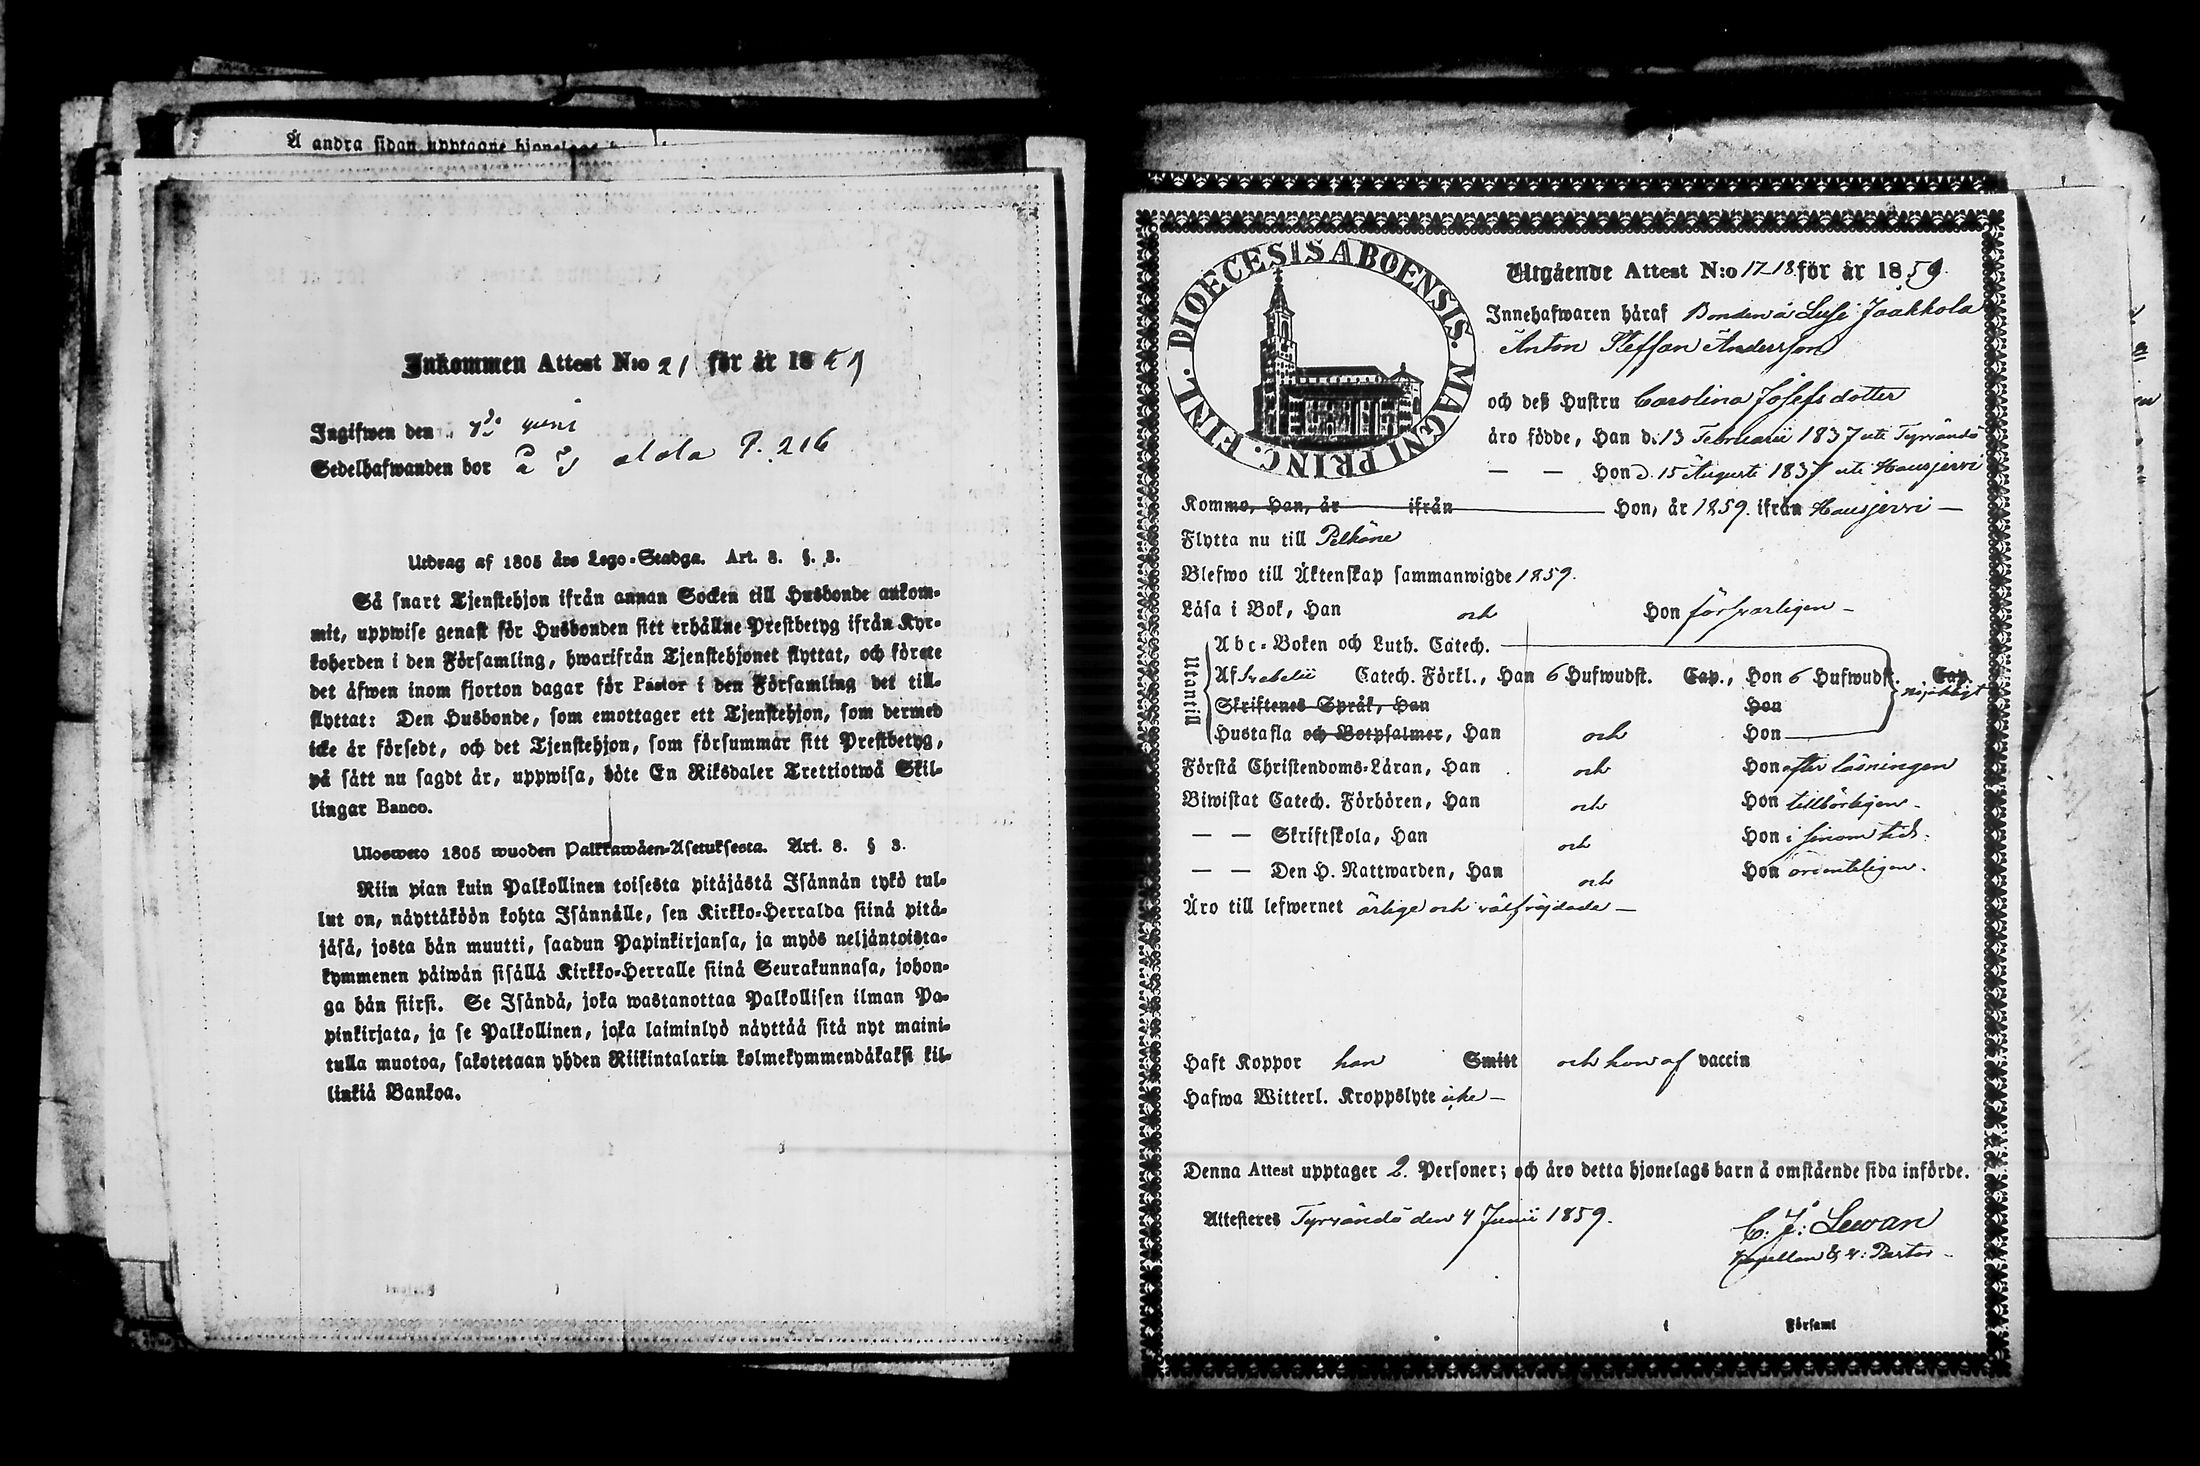 Å andra sidan upptagne hjonelags
Inkommen Attest N:o 21 för år 1859
Ingifwen den juni
Sedelhafwanden bor på P. 216
Utdrag af 1805 års Lego-Stadga. Art. 8. §. 3.
Så snart Tjenstehjon ifrån annan Socken till Husbonde ankom-
mit, uppwise genast för Husbonden sitt erhållne Prestbetyg ifrån Kyr-
koherden i den Församling, hwarifrån Tjenstehjonet flyttat, och förete
det äfwen inom fjorton dagar för Pastor i den Församling det till-
flyttat: Den Husbonde, som emottager ett Tjenstehjon, som dermed
icke är försedt, och det Tjenstehjon, som försummar sitt Prestbetyg,
på sätt nu sagdt är, uppwisa, böte En Riksdaler Trettiotwå Skil-
lingar Banco.
Uloswето 1805 wuoden Palkkawäen-Asetuksesta. Art. 8. § 3.
Niin pian kuin Palkollinen toisesta pitäjästä Isännän tykö tul-
lut on, näyttäköön kohta Isännälle, sen Kirkko-Herralda siinä pitä-
jäsä, josta hän muutti, saadun Papinkirjansa, ja myös neljäntoista-
kymmenen päiwän sisällä Kirkko-Herralle siinä Seurakunnasa, johon-
ga hän siirsi. Se Isändä, joka wastanottaa Palkollisen ilman Pa-
pinkirjata, ja se Palkollinen, joka laiminlyö näyttää sitä nyt maini-
tulla muotoa, sakotetaan yhden Riikintalarin kolmekymmendäkaksi kil-
linkiä Bankoa.
DIOECESIS ABOENSIS. MAGNI PRINC. FINL.
Utgående Attest N:o 17-18 för år 1859.
Innehafwaren häraf Bonden å Jaakkola
Anton Steffan Andersson
och deß Hustru Carolina Josefsdotter
äro födde, Han d. 13 Februarii 1837 uti Tyrvändö
— — Hon d. 15 Augusti 1837 uti Hausjervi
Kommo, Han, år ifrån Hon, år 1859. ifrån Hausjervi —
Flytta nu till Pelkäne
Blefwo till Äktenskap sammanwigde 1859.
Läsa i Bok, Han och Hon försvarligen —
Utantill
Abc-Boken och Luth. Catech.
Af Svebelii Catech. Förkl., Han 6 Hufwudst. Cap., Hon 6 Hufwudst. Cap.
nöjaktigt
Skriftenes Språk, Han Hon
Hustafla och Botpsalmer, Han och Hon
Förstå Christendoms-Läran, Han och Hon efter läsningen
Biwistat Catech. Förhören, Han och Hon tillbörligen —
— — Skriftskola, Han och Hon i sinom tid.
— — Den H. Nattwarden, Han och Hon ordenteligen.
Äro till lefwernet ärlige och välfräjdade —
Haft Koppor han Smitt och hon af vaccin
Hafwa Witterl. Kroppslyte icke —
Denna Attest upptager 2. Personer; och äro detta hjonelags barn å omstående sida införde.
Attesteres Tyrvändö den 4 Junii 1859.
C. J. Lewan
Kapellan & v. Pastor —
Församl